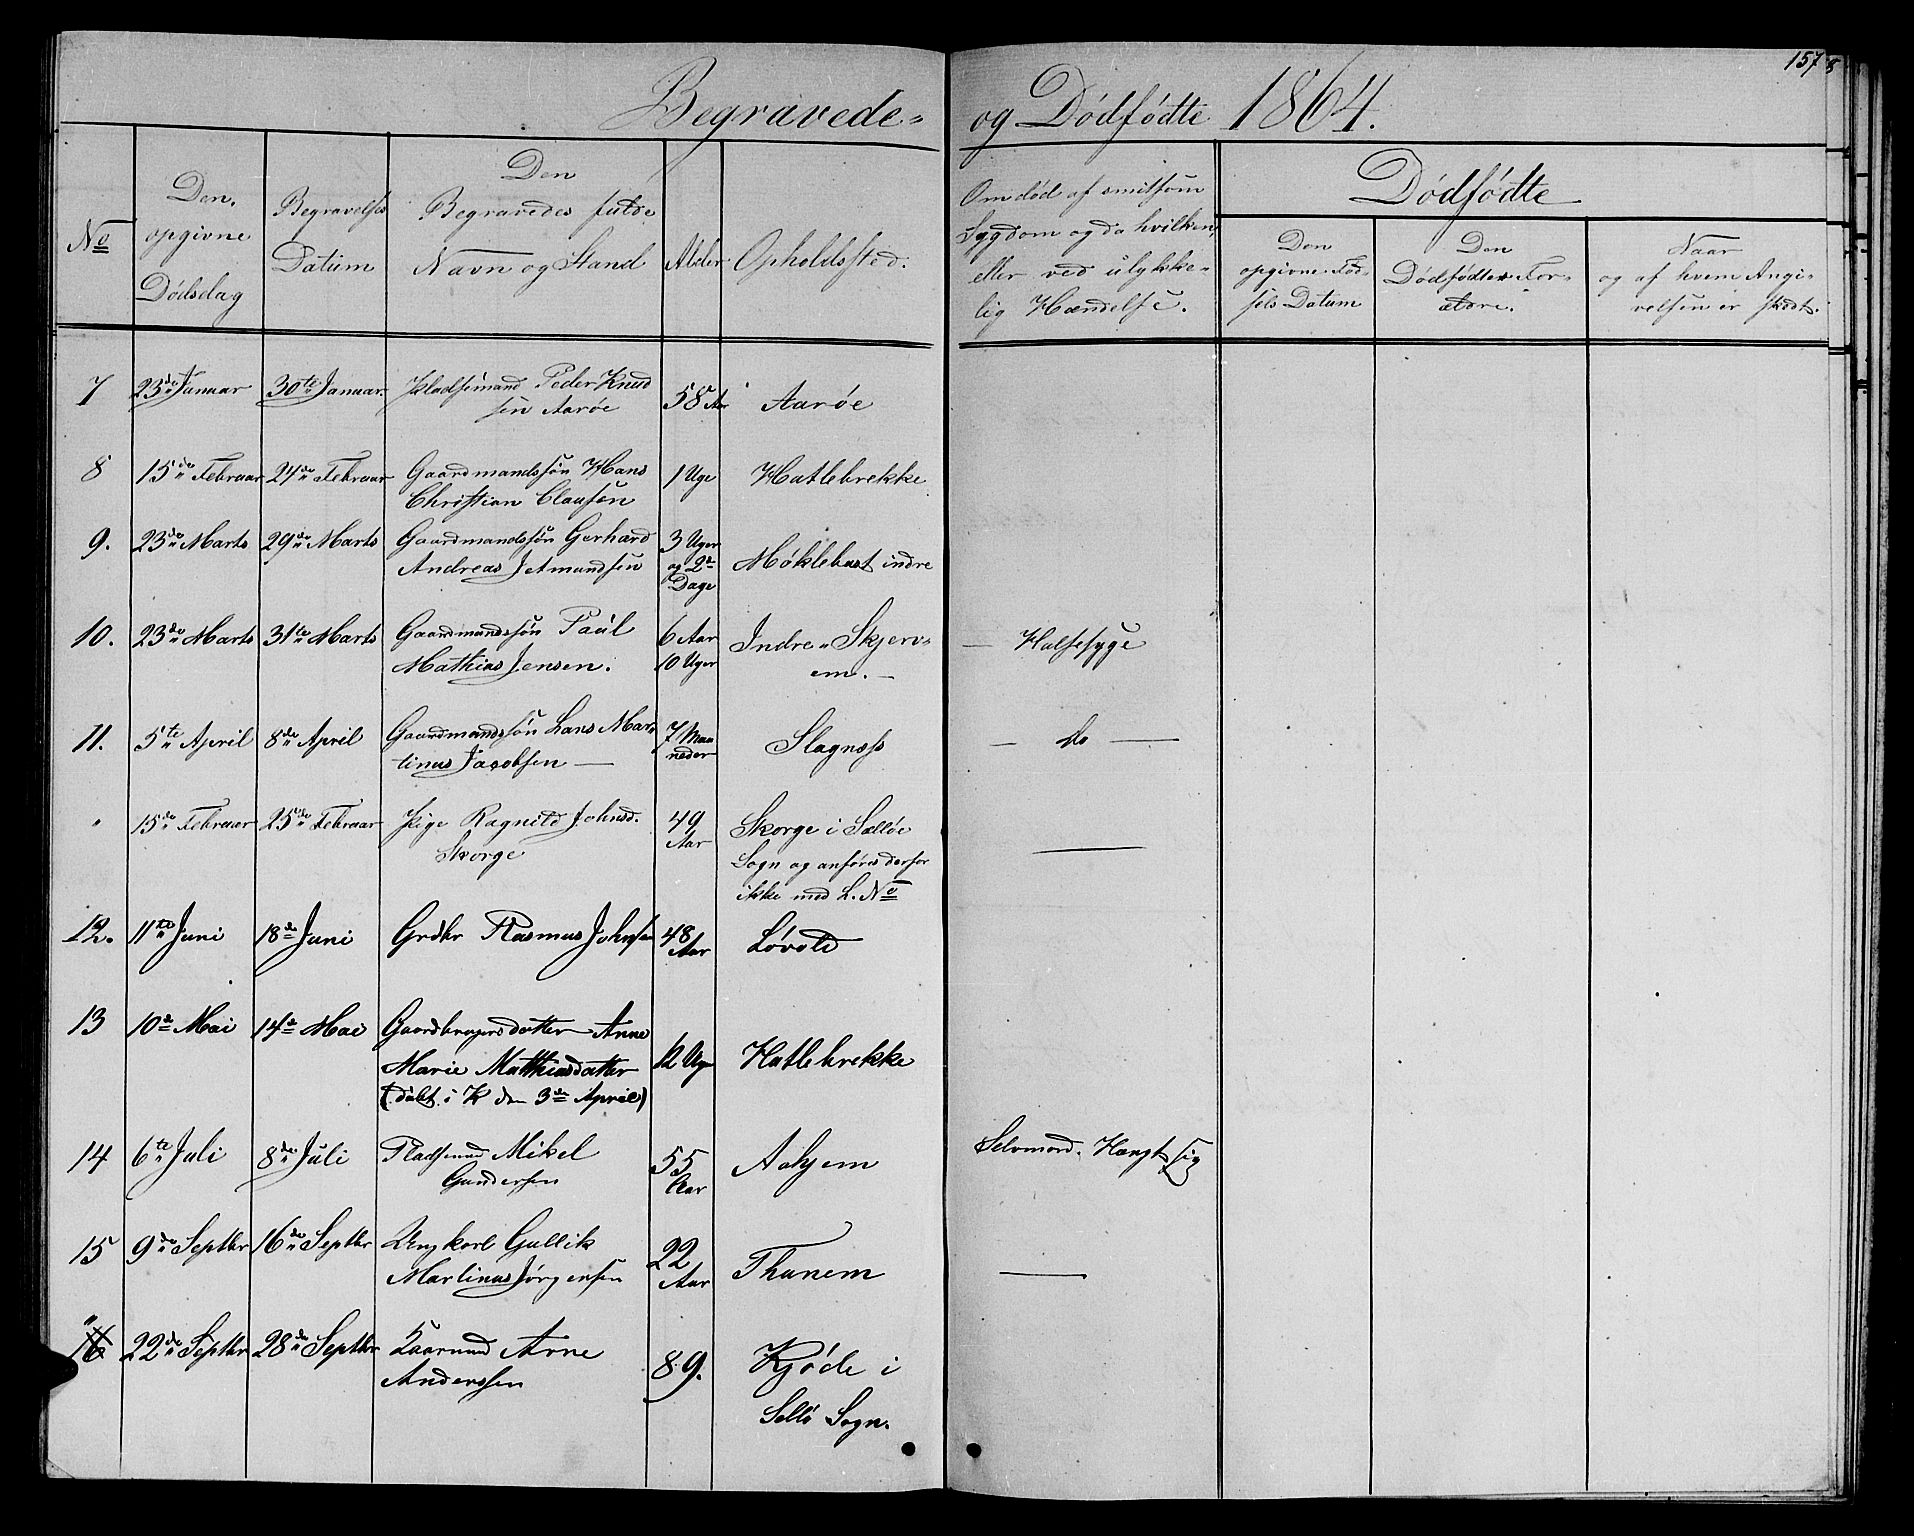 157
8
Begravede= og Dødfødte 1864.
No
Den
opgivne
Dødsdag
Begravelses
Datum
Den
Begravedes fulde
Navn og Stand
Alder
Opholdssted.
Om død af smitsom
Sygdom og da hvilken,
eller ved ulykke-
lig Hændelse.
Dødfødte
Den
opgivne Fød-
sels Datum
Den
Dødfødtes For-
ældre.
Naar
og af hvem Angi-
velsen er skedt.
7 23de Januar 30te Januar. Pladsemand Peder Knud
sen Aarøe 58 Aar Aarøe
8 15de Februar 24de Februar Gaardmandssøn Hans
Christian Clausen 1 Uge Hatlebrekke
9. 23de Marts 29de Marts Gaardmandssøn Gerhard
Andreas J Amundsen 3 Uger
og 2
Dage Møklebust indre
10. 23de Marts 31te Marts Gaardmandssøn Paul
Mathias Jensen. 6 Aar
10 Uger Indre Skjerv-
em. — — Halsesyge
11. 5te April 8de April Gaardmandssøn Lars Mar-
tinus Jacobsen — 7 Maa
neder Slagnæss — do —
" 15de Februar 25de Februar Pige Ragnild Johnsd.
Skorge 49
Aar Skorge i Selløe
Sogn og anføres derfor
ikke med L. No —
12. 11te Juni 18de Juni Grdbr Rasmus Johnsen 48
Aar Løvold
13 10de Mai 14de Mai Gaardbrugersdatter Anne
Marie Matthiasdatter
(døbt i K den 3de April) 12 Uger Hatlebrekke
14 6te Juli 8de Juli Pladsemd Mikel
Gundersen 55
Aar Aahjem Selvmord. Hængt sig
15 9de Septbr 16de Septbr Ungkarl Gullik
Martinus Jørgensen 22
Aar Thunem —
"
16 22de Septbr 28de Septbr Kaarmd Arne
Anderssen 89. Kjøde i
Sellø Sogn.